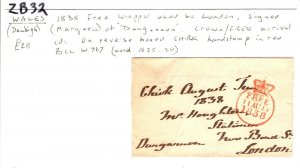 ZB32
WALES 1838 Free Wrapper used to London, signed
(Denbigh) (Marquess) of Dungannon. Crown/FREE arrival
£28 cds. On reverse boxed CHIRK handstamp in red
BCC W767 (used 1835-50)
Chirk August
1838
Mr. Houghton
Stationer
Dungannon New Bond St.
London
FREE
1838